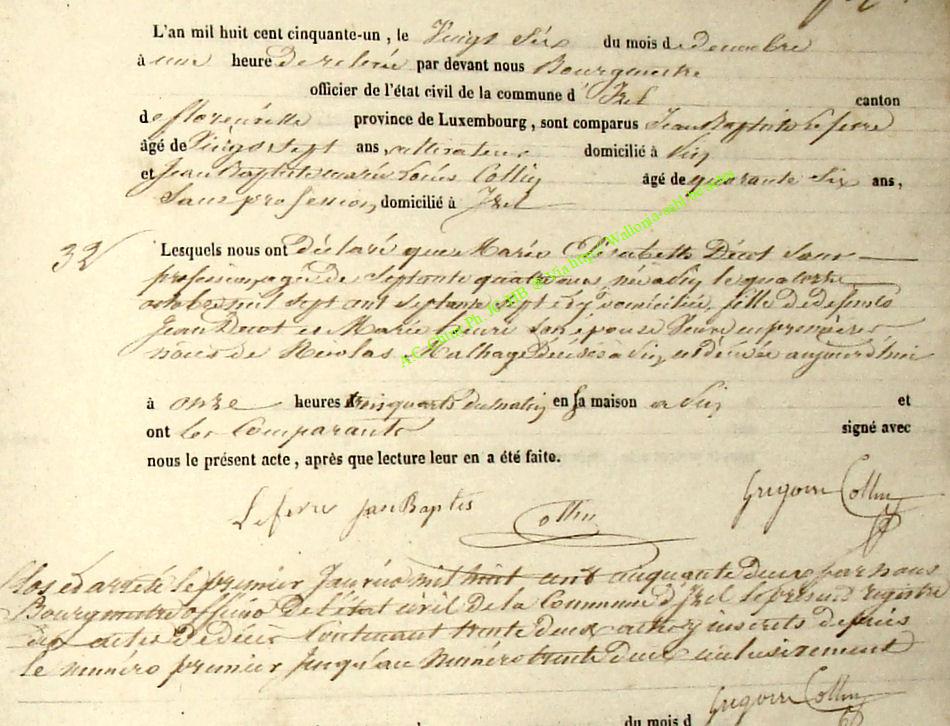 L'an mil huit cent cinquante-un, le Vingt Six du mois de decembre
à une heure De relevée par devant nous Bourgmestre
officier de l'état civil de la commune d' Izel canton
de florenville province de Luxembourg, sont comparus Jean Baptiste Lefevre
âgé de Vingt sept ans, cultivateur domicilié à
et Jean Baptiste Louis Collin âgé de quarante Six ans,
Sans profession, domicilié à Izel
32
Lesquels nous ont Déclaré que Marie Elisabeth Sans
profession agée de Septante quatre ans, née à le quatorze
mil Sept cent Septante Sept et y domiciliée, fille de defunts
Jean et Marie Son épouse Veuve en premières
noces de Nicolas Décédé à est décédée aujourd'hui
à onze heures trois quarts du matin en sa maison a et
ont les Comparants signé avec
nous le présent acte, après que lecture leur en a été faite.
Lefevre Jean Baptis Collin Grégoire Collin
Clos et arrêté le premier Janvier mil huit cent cinquante deux par nous
Bourgmestre officier De l'état civil de la Commune d'Izel le présent registre
des actes de décès Contenant trente deux inscrits depuis
le numéro premier Jusqu'au Numéro trente deux inclusivement
Grégoire Collin
du mois d